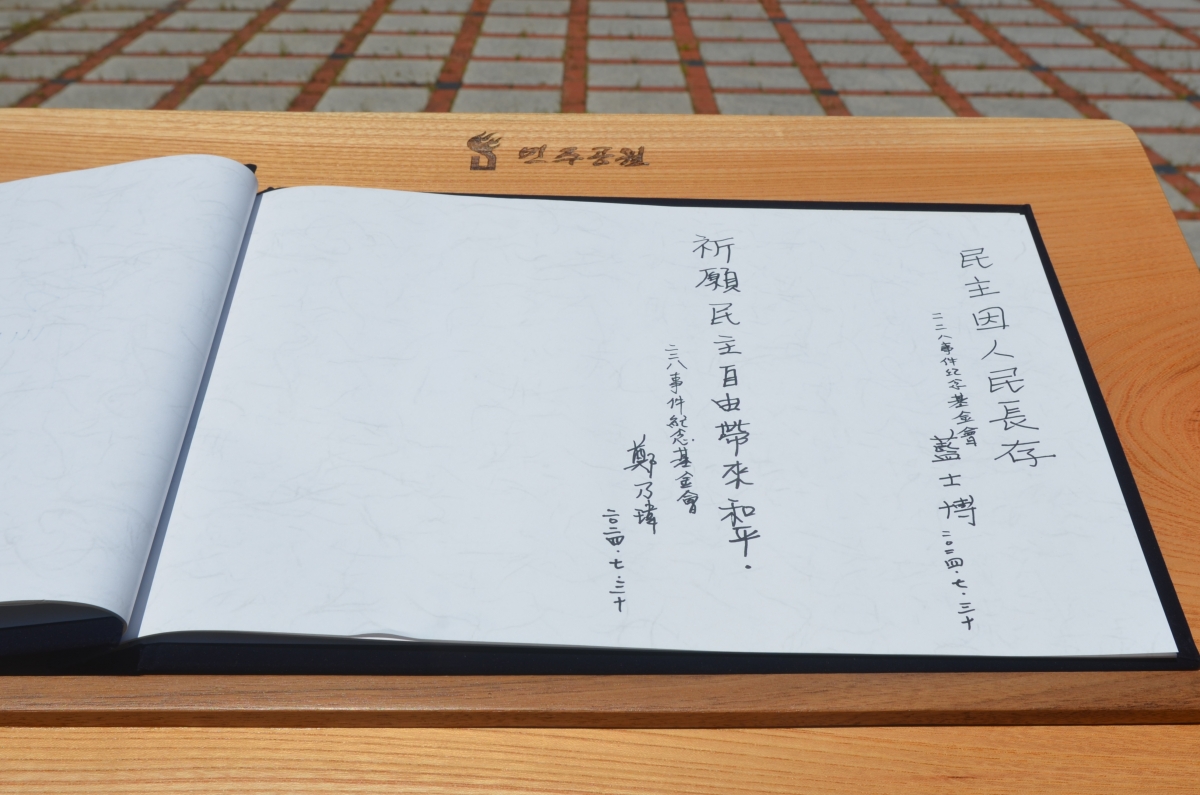 民主因人民長存
二二八事件紀念基金會
藍士博
二〇二四.七.三十
祈願民主自由帶來和平.
二二八事件紀念基金會
鄭乃瑋
二〇二四.七.三十